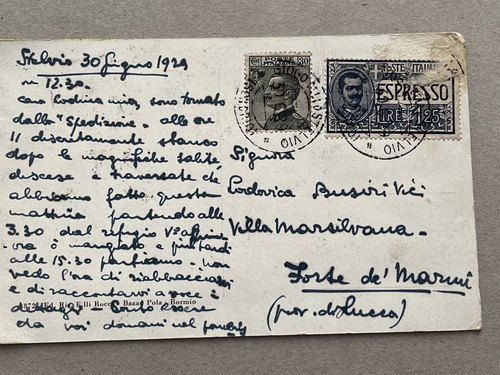 Stelvio 30 Giugno 1929
n 12.30.
cara Lodina mia, sono tornato
dalla "spedizione" alle ore
11 discretamente stanco
dopo le magnifiche salite,
discese e traversate che
abbiamo fatto questa
mattina partendo alle
3.30 dal refugio
ora ò mangiato e più tardi
alle 15.30 partiamo. non
vedo l'ora di riabbracciarvi
e di raccontarvi a voce i
dettagli - Conto essere
da voi domani nel
Ed. Rocca Bazar Pola - Bormio
POSTE ITALIANE
ESPRESSO
LIRE 1,25
STELVIO
Signora
Lodovica Busiri Vici
Villa Marsilvana.
Forte de' Marmi
(prov. di Lucca)